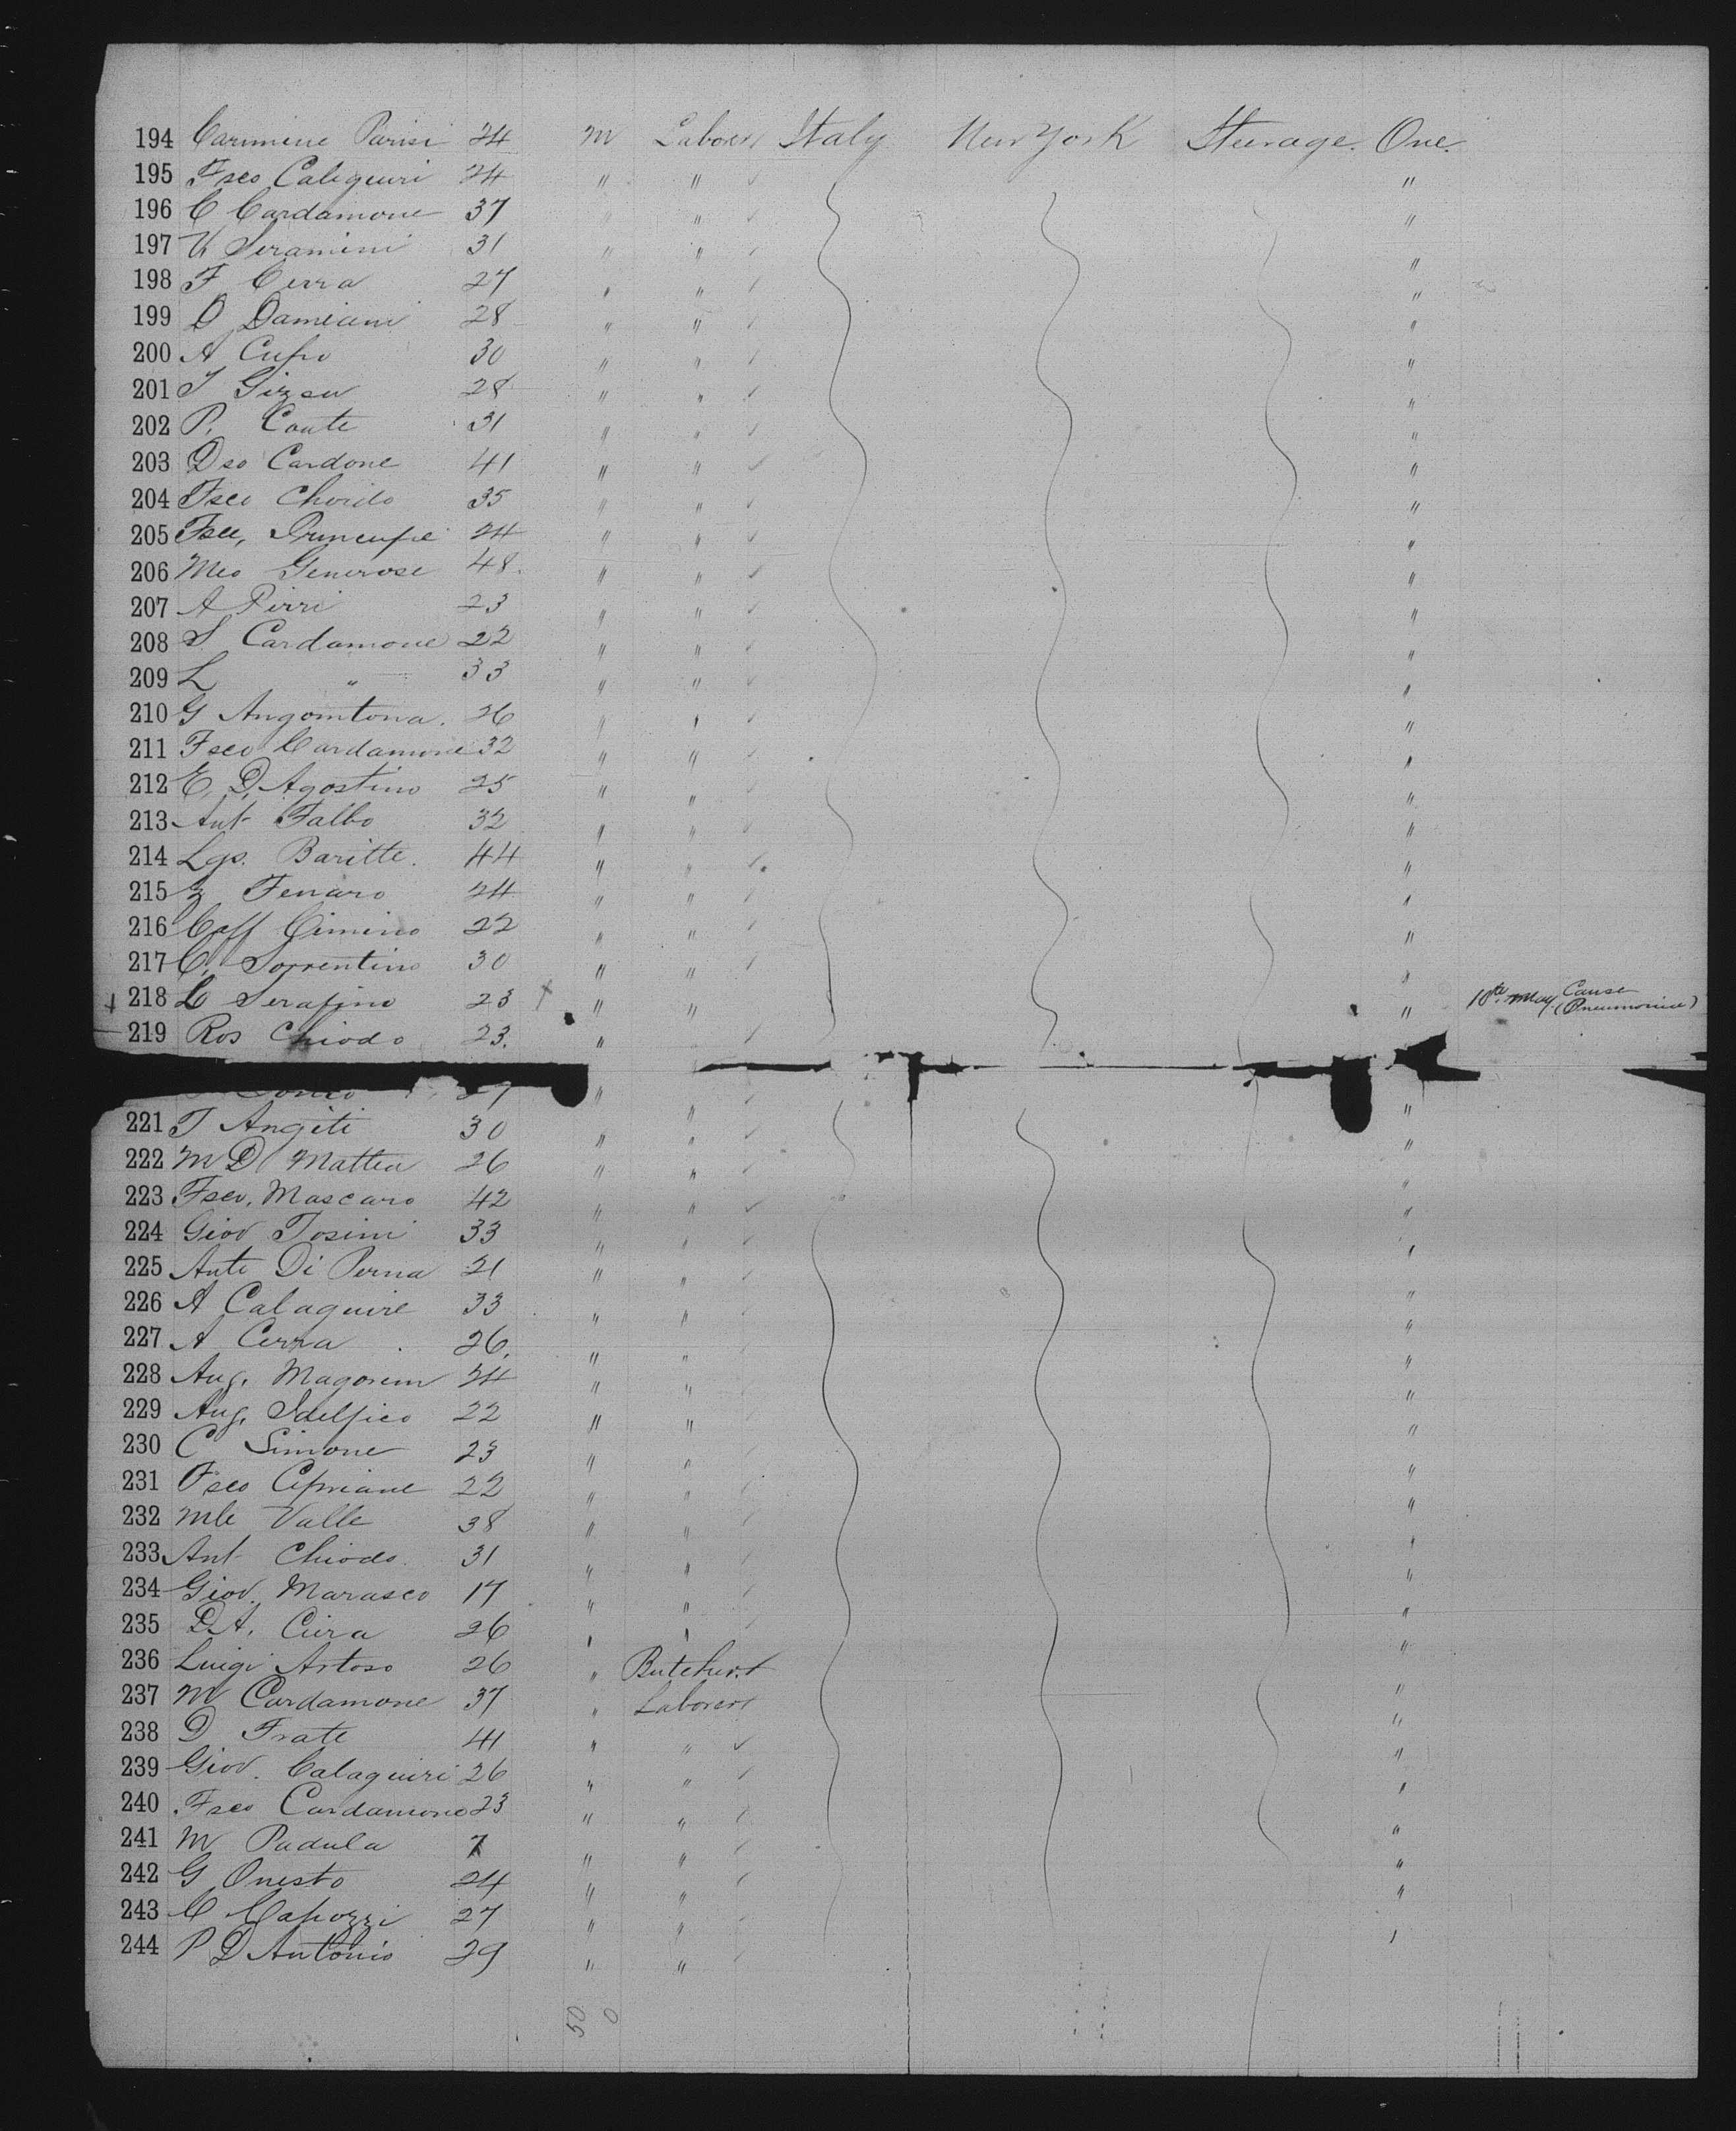 194 Carmine Parisi 24 M Laborer Italy New York Steerage. One.
195 Fsco Caliguiri 24 " " "
196 C Cardamone 37 " " "
197 V Seramini 31 " " "
198 F Cerra 27 " " "
199 D Damiani 28 " " "
200 A Cupo 30 " " "
201 28 " " "
202 P. Conte 31 " " "
203 Dco Cardone 41 " " "
204 Fsco Choido 35 " " "
205 24 " " "
206 Mco Generose 48. " " "
207 A Pirri 23 " " "
208 S Cardamone 22 " " "
209 L " 33 " " "
210 G Angomtona. 26 " " "
211 Fsco Cardamone 32 " " "
212 E. D. Agostino 25 " " "
213 Ant Falbo 32 " " "
214 Lgs. Baritte. 44 " " "
215 24 " " "
216 Caff Cimino 22 " " "
217 C. Sorrentino 30 " " "
218 L Serafino 23 " " " 10th May. Cause (Pneumonia)
219 Ros Chiodo 23. " "
27 " " "
221 T Angiti 30 " " "
222 M D Mattia 26 " " "
223 Fsco. Mascaro 42 " " "
224 Giov Tosini 33 " " "
225 Ante Di Perna 21 " " "
226 A Calaguire 33 " " "
227 A Cerra 26. " " "
228 Aug. 24 " " "
229 Aug. Idelfico 22 " " "
230 C Simone 23 " " "
231 Fsco Cipriane 22 " " "
232 Mle Valle 38 " " "
233 Ant Chiodo. 31 " " "
234 Giov. Marasco 17 " " "
235 D.A. Cira 26 " " "
236 Luigi Artoso 26 " Butcher "
237 M Cardamone 37 " Laborer "
238 D Frate 41 " " "
239 Giov. Calaguiri 26 " " "
240 Fsco Cardamone 23 " " "
241 M Padula " " "
242 G Onesto 24 " " "
243 C Capozzi 27 " " "
244 P D Antonio 29 " "
50 0